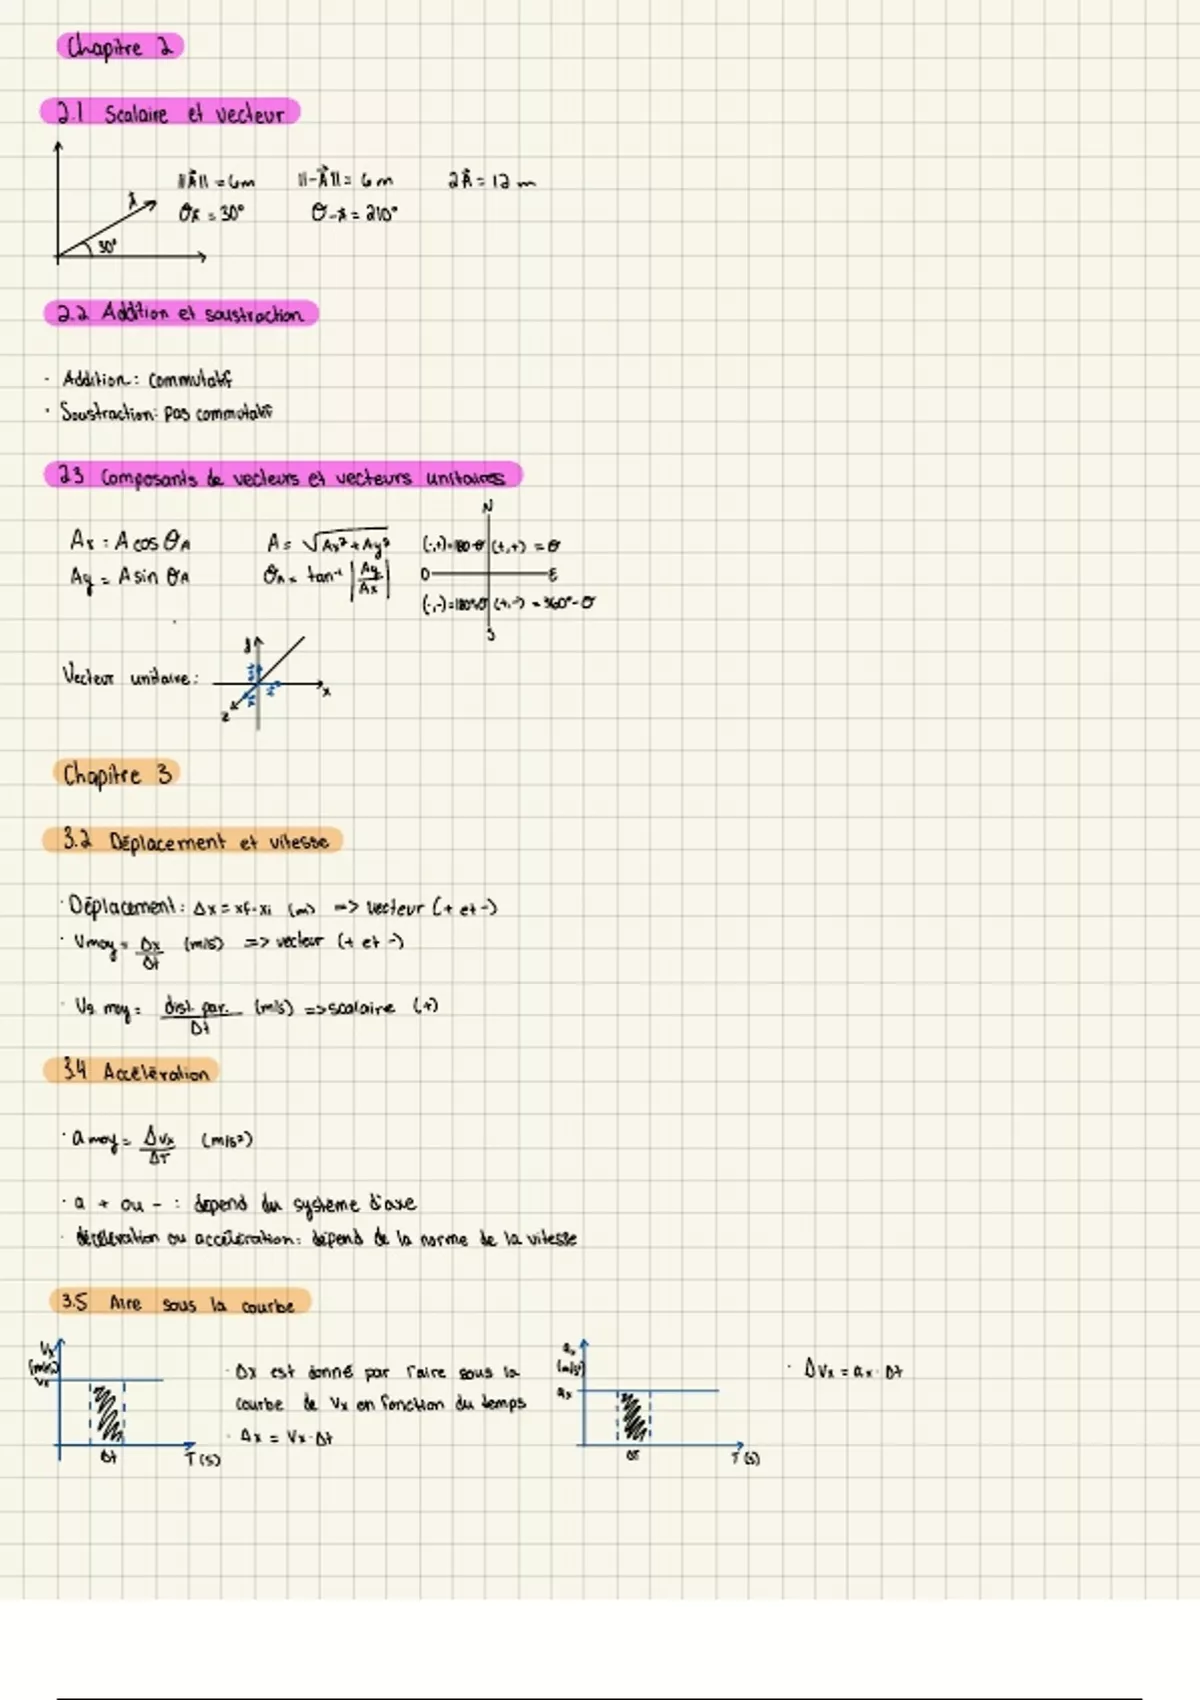 Chapitre 2
2.1 Scalaire et vecteur
||Ā|| = 6m ||-Ā|| = 6m 2Ā = 12 m
θĀ = 30° θ-Ā = 210°
A
30°
2.2 Addition et soustraction
· Addition : commutatif
· Soustraction: pas commutatif
2.3 Composants de vecteurs et vecteurs unitaires
N
Ax = A cos θA A = √Ax² + Ay² (-,+)=180-θ (+,+) = θ
Ay = A sin θA θA = tan⁻¹ |Ay/Ax| O E
(-,-)=180+θ (+,-) = 360°-θ
S
y
Vecteur unitaire :
x
z
Chapitre 3
3.2 Déplacement et vitesse
· Déplacement : Δx = xf-xi (m) => vecteur (+ et -)
· Vmoy = Δx/Δt (m/s) => vecteur (+ et -)
· Vs moy = dist. par./Δt (m/s) => scalaire (+)
3.4 Accélération
· a moy = Δvx/ΔT (m/s²)
· a + ou - : dépend du système d'axe
· décélération ou accélération : dépend de la norme de la vitesse
3.5 Aire sous la courbe
Vx (m/s)
Vx
Δt
T (s)
· Δx est donné par l'aire sous la
courbe de Vx en fonction du temps
· Δx = Vx·Δt
ax (m/s²)
ax
ΔT
T (s)
· ΔVx = ax·Δt